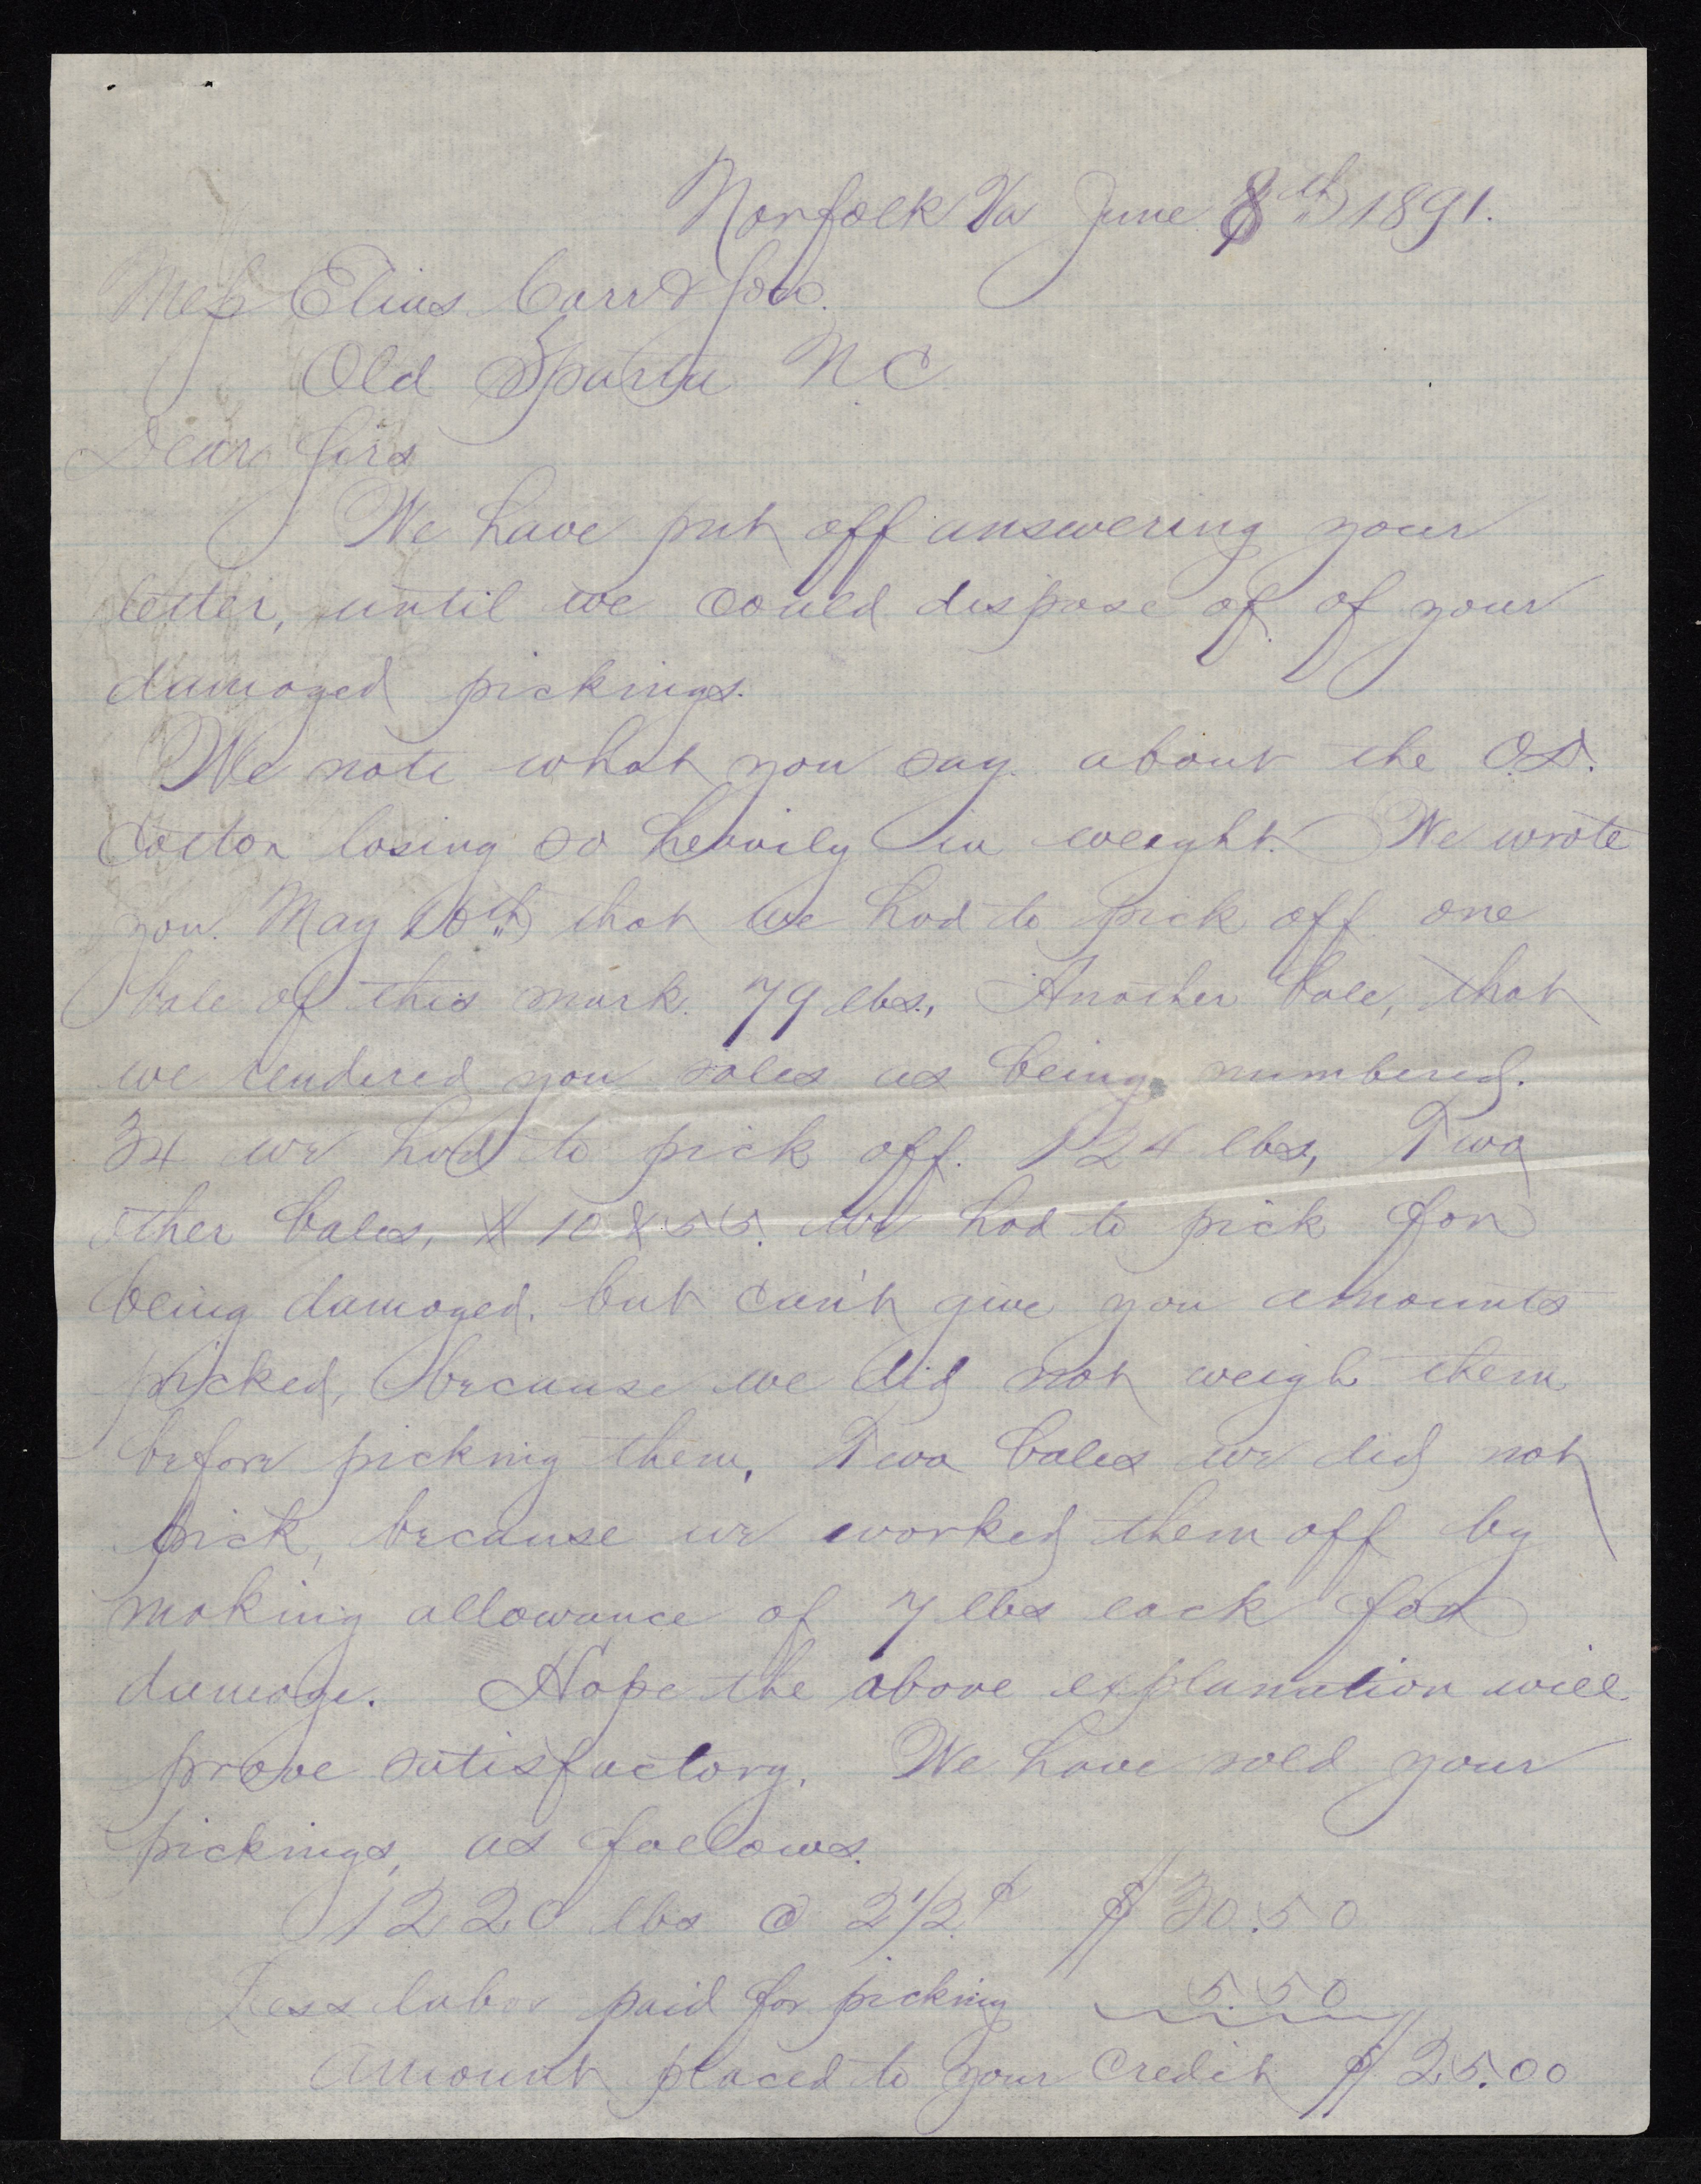 Norfolk Va June 8th 1891.
Mess Elias Carr & Son.
Old Sparta N C
Dear Sirs
We have put off answering your
letter, until we could dispose of of your
damaged pickings.
We note what you say about the O.S.
Cotton losing so heavily in weight. We wrote
you May 16th that we had to pick off one
bale of this mark 79 lbs., Another bale, that
we rendered you sales as being numbered.
34 we had to pick off. 124 lbs, Two
other bales, # 10 & 55. we had to pick for
being damaged. but can't give you amounts
picked, because we did not weigh them
before picking them. Two bales we did not
pick, because we worked them off by
making allowance of 7 lbs each for
damage. Hope the above explanation will
prove satisfactory. We have sold your
pickings, as follows.
1220 lbs @ 2 1/2 ¢ $ 30.50
Less labor paid for picking 5.50
Amount placed to your Credit $ 25.00